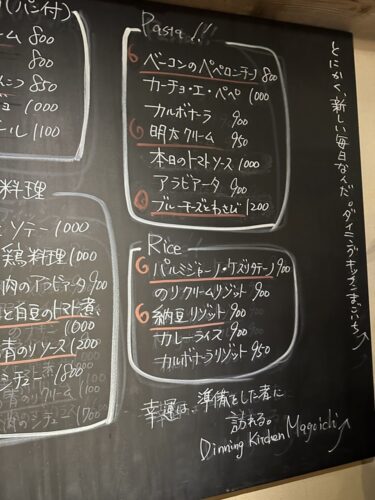 (パン付)
ム 800
800
1000
ール 1100
料理
ソテー 1000
鶏料理 1000
肉のアラビアータ 900
と白豆のトマト煮
1000
青のりソース 1200
シチュー 1800
Pasta!!!
ベーコンのペペロンチーノ 800
カーチョ・エ・ペペ 1000
カルボナーラ 900
明太クリーム 950
本日のトマトソース 1000
アラビアータ 900
ブルーチーズとわさび 1200
Rice
パルミジャーノ・ケズリタテーノ 900
のりクリームリゾット 900
納豆リゾット 900
カレーライス 900
カルボナーラリゾット 950
幸運は、準備をした者に
訪れる。
Dinning Kitchen Magoichi
とにかく、新しい毎日なんだ。ダイニングキッチンまごいち